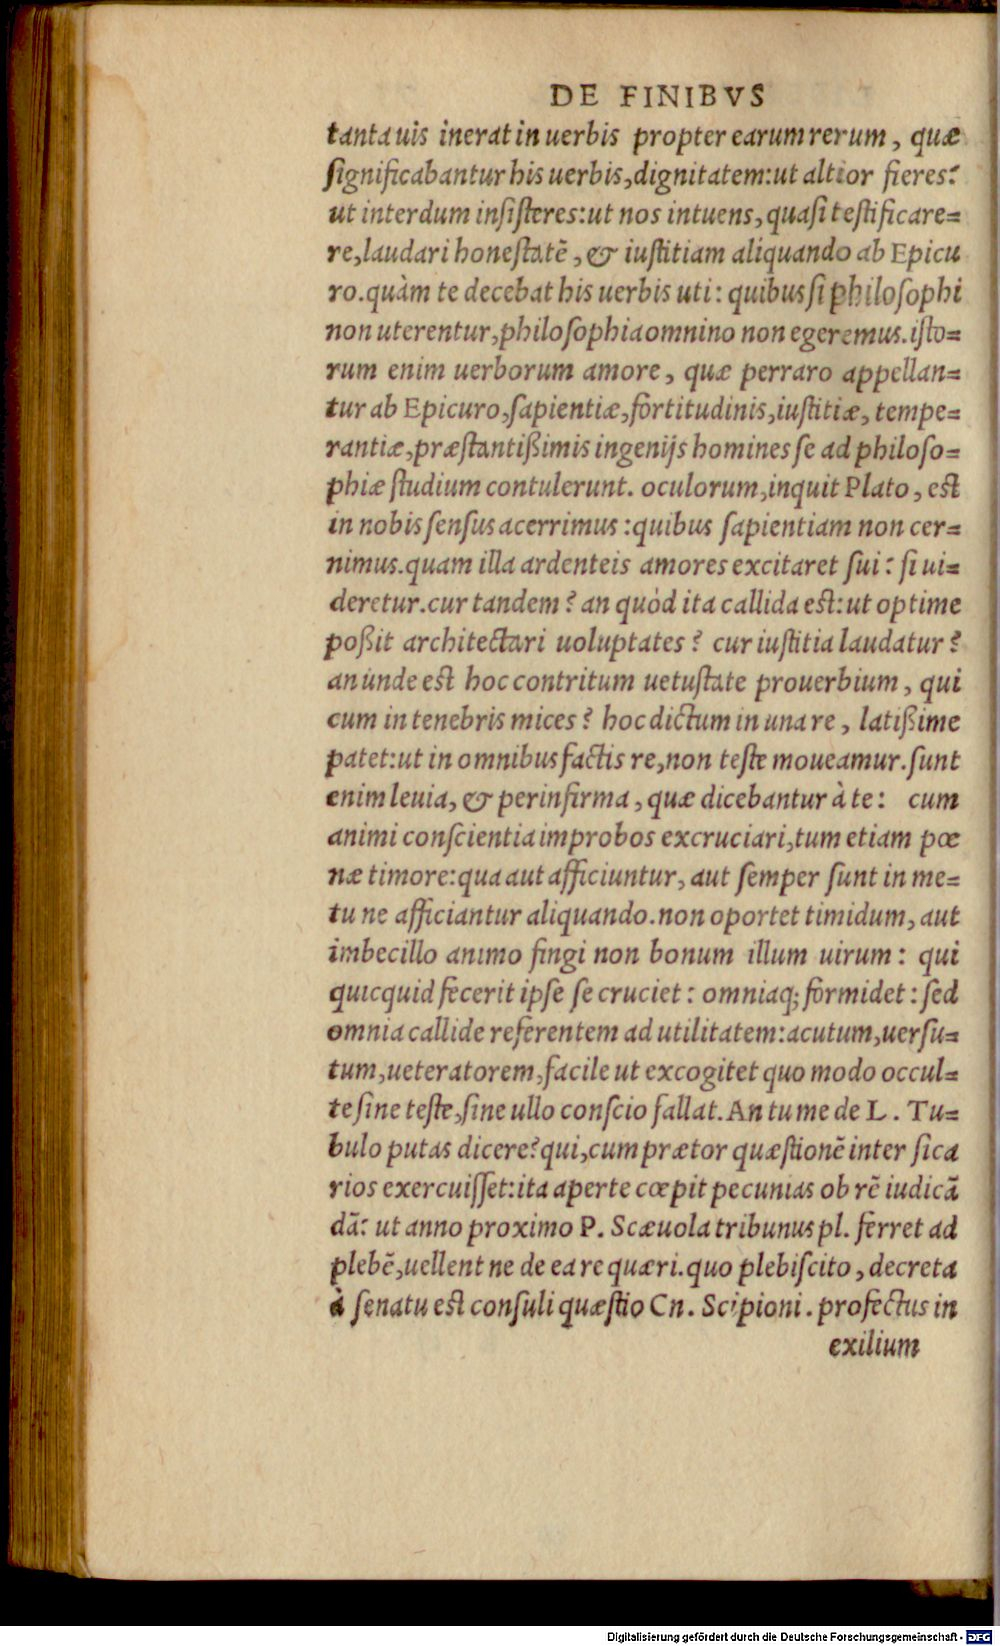 DE FINIBVS
tanta uis inerat in uerbis propter earum rerum, quæ
ſignificabantur his uerbis, dignitatem: ut altior fieres:
ut interdum inſiſteres: ut nos intuens, quaſi teſtificare=
re, laudari honeſtatē, & iuſtitiam aliquando ab Epicu
ro. quàm te decebat his uerbis uti: quibus ſi philoſophi
non uterentur, philoſophia omnino non egeremus. iſto=
rum enim uerborum amore, quæ perraro appellan=
tur ab Epicuro, ſapientiæ, fortitudinis, iuſtitiæ, tempe=
rantiæ, præſtantißimis ingenijs homines ſe ad philoſo=
phiæ ſtudium contulerunt. oculorum, inquit Plato, eſt
in nobis ſenſus acerrimus: quibus ſapientiam non cer=
nimus. quam illa ardenteis amores excitaret ſui: ſi ui=
deretur. cur tandem? an quòd ita callida eſt: ut optime
poßit architectari uoluptates? cur iuſtitia laudatur?
an unde eſt hoc contritum uetuſtate prouerbium, qui
cum in tenebris mices? hoc dictum in una re, latißime
patet: ut in omnibus factis re, non teſte moueamur. ſunt
enim leuia, & perinfirma, quæ dicebantur à te: cum
animi conſcientia improbos excruciari, tum etiam pœ
næ timore: qua aut afficiuntur, aut ſemper ſunt in me=
tu ne afficiantur aliquando. non oportet timidum, aut
imbecillo animo fingi non bonum illum uirum: qui
quicquid fecerit ipſe ſe cruciet: omniaq; formidet: ſed
omnia callide referentem ad utilitatem: acutum, uerſu=
tum, ueteratorem, facile ut excogitet quo modo occul=
te ſine teſte, ſine ullo conſcio fallat. An tu me de L. Tu=
bulo putas dicere? qui, cum prætor quæſtionē inter ſica
rios exercuiſſet: ita aperte cœpit pecunias ob rē iudicā
dā: ut anno proximo P. Scæuola tribunus pl. ferret ad
plebē, uellent ne de ea re quæri. quo plebiſcito, decreta
à ſenatu eſt conſuli quæſtio Cn. Scipioni. profectus in
exilium
Digitalisierung gefördert durch die Deutsche Forschungsgemeinschaft - DFG